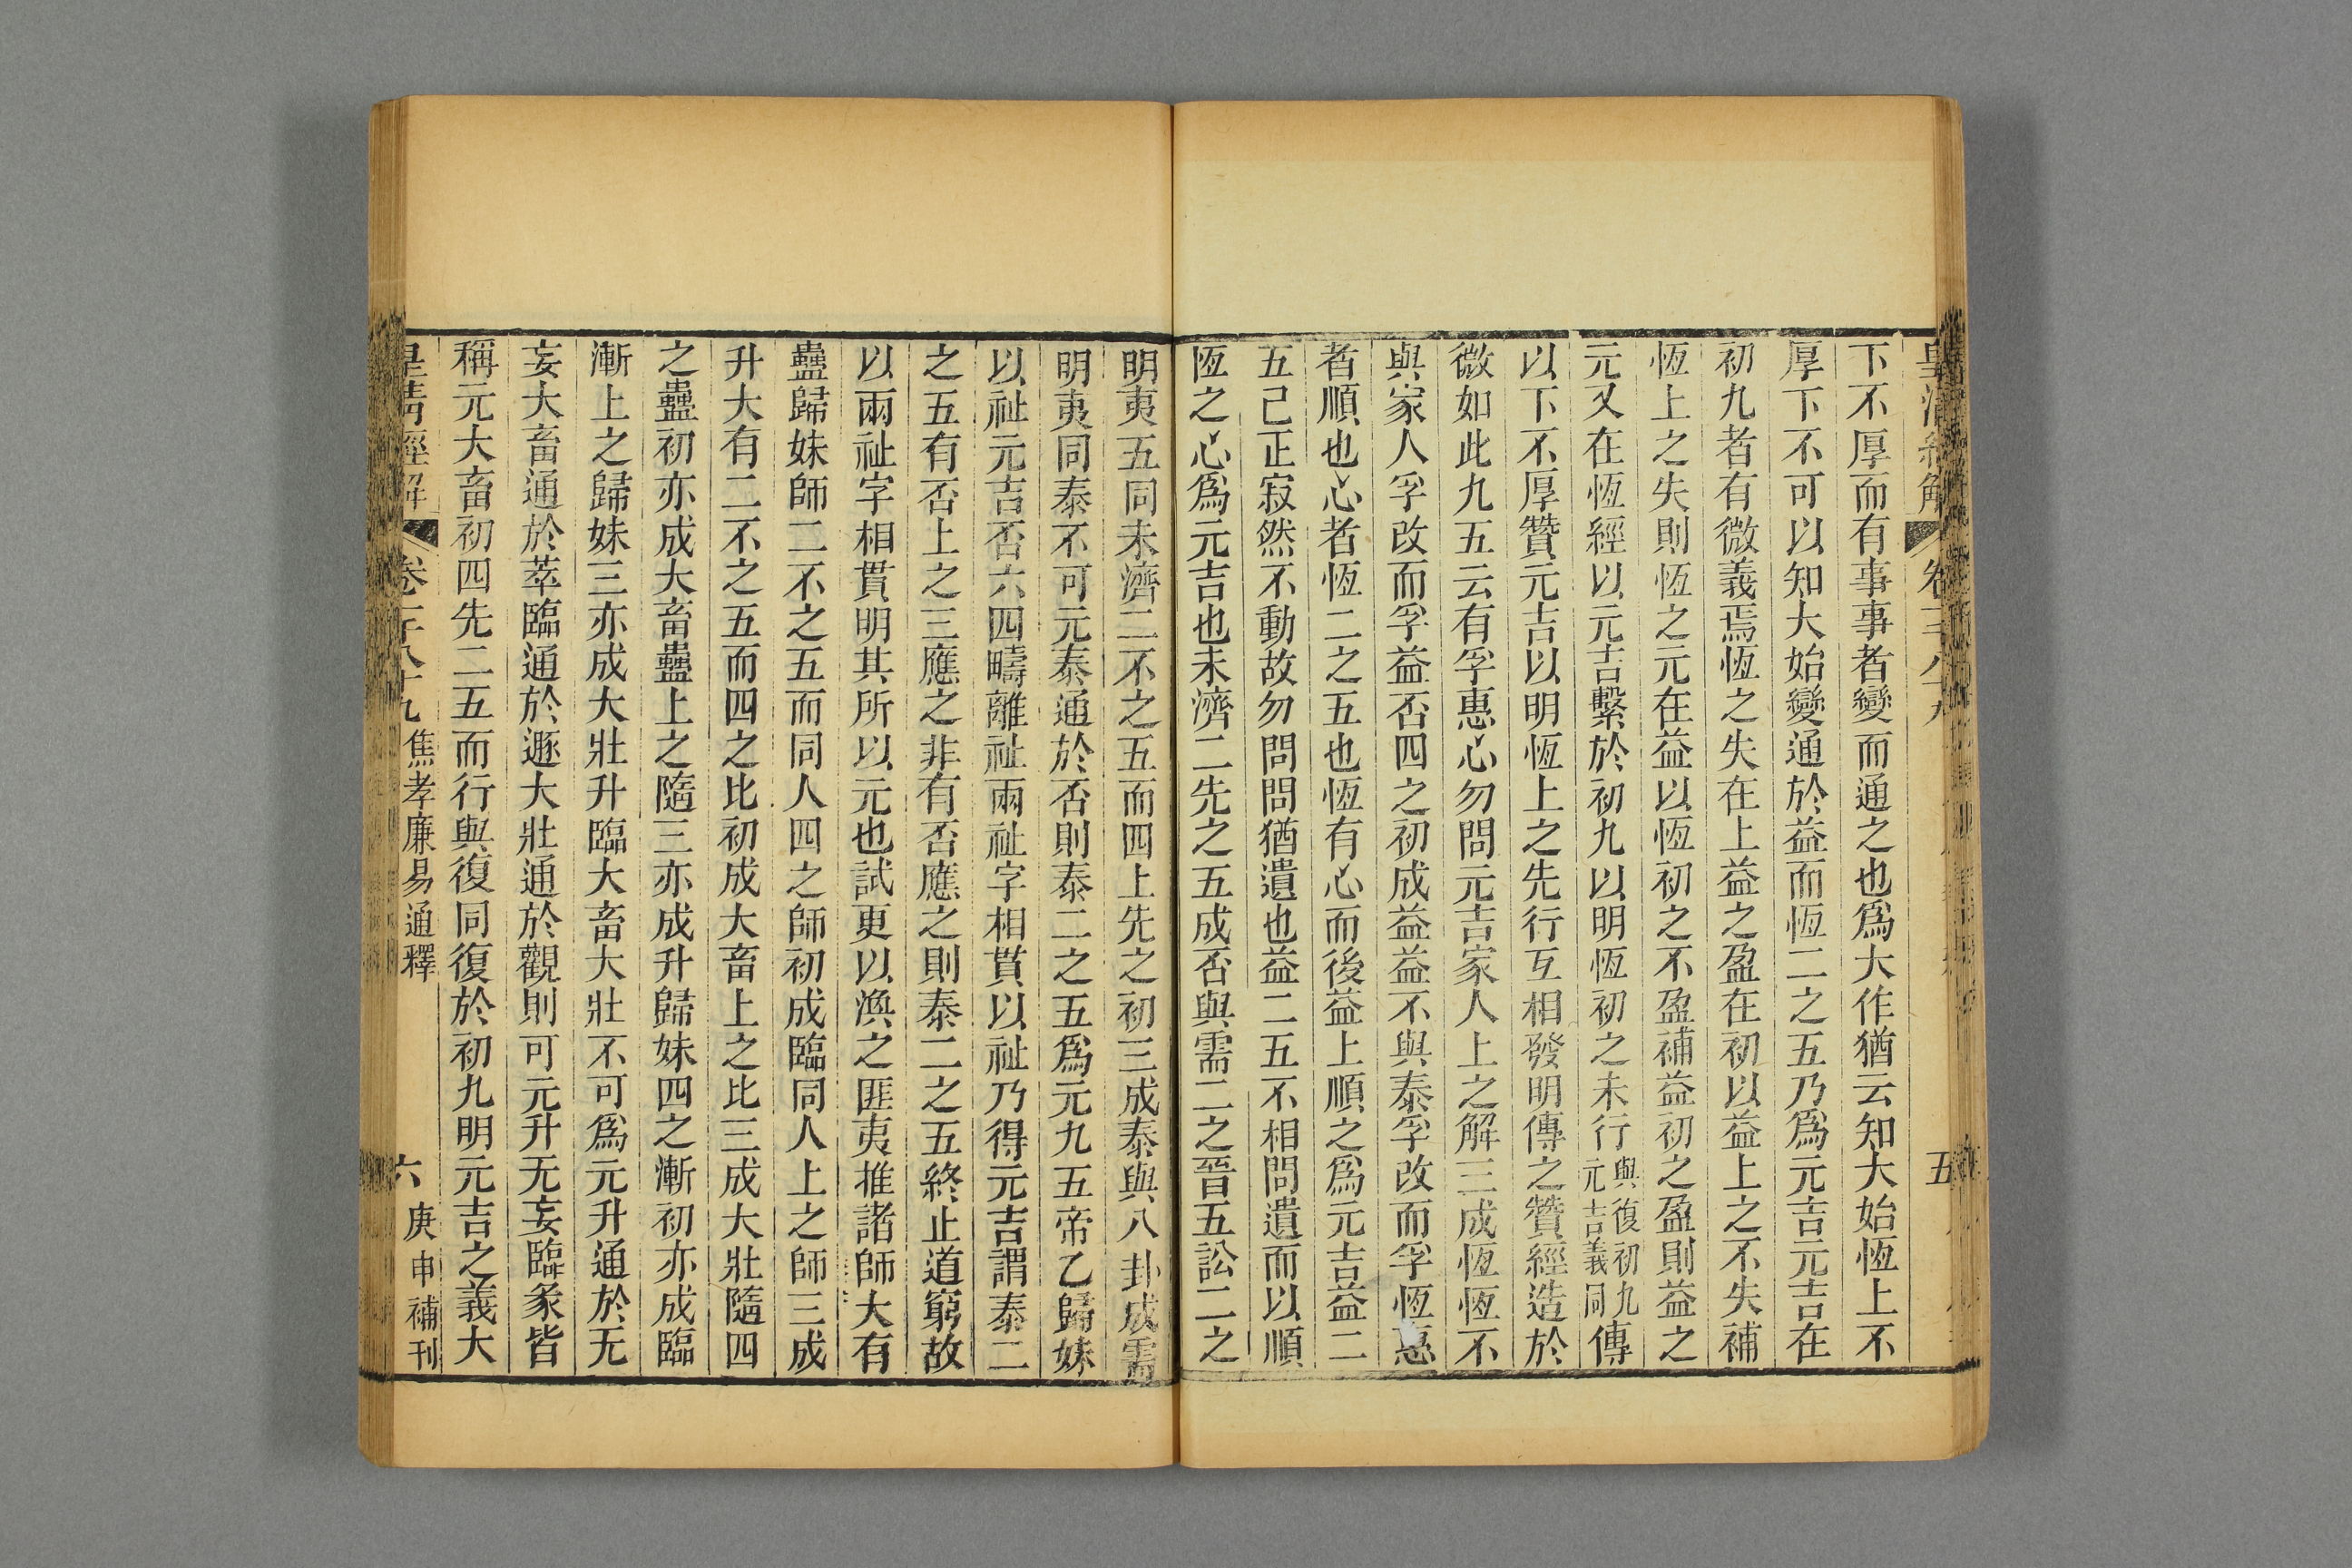 下不厚而有事事者變而通之也爲大作猶云知大始恆上不
厚下不可以知大始變通於益而恆二之五乃爲元吉元吉在
初九者有微義焉恆之失在上益之盈在初以益上之不失補
恆上之失則恆之元在益以恆初之不盈補益初之盈則益之
元又在恆經以元吉繫於初九以明恆初之未行與復初九元吉義同傳
以下不厚贊元吉以明恆上之先行互相發明傳之贊經造於
微如此九五云有孚惠心勿問元吉家人上之解三成恆恆不
與家人孚改而孚益否四之初成益益不與泰孚改而孚恆惠
者順也心者恆二之五也恆有心而後益上順之爲元吉益二
五已正寂然不動故勿問問猶遺也益二五不相問遺而以順
恆之心爲元吉也未濟二先之五成否與需二之晉五訟二之
明夷五同未濟二不之五而四上先之初三成泰與八卦成需
明夷同泰不可元泰通於否則泰二之五爲元九五帝乙歸妹
以祉元吉否六四疇離祉兩祉字相貫以祉乃得元吉謂泰二
之五有否上之三應之非有否應之則泰二之五終止道窮故
以兩祉字相貫明其所以元也試更以渙之匪夷推諸師大有
蠱歸妹師二不之五而同人四之師初成臨同人上之師三成
升大有二不之五而四之比初成大畜上之比三成大壯隨四
之蠱初亦成大畜蠱上之隨三亦成升歸妹四之漸初亦成臨
漸上之歸妹三亦成大壯升臨大畜大壯不可爲元升通於无
妄大畜通於萃臨通於遯大壯通於觀則可元升无妄臨彖皆
稱元大畜初四先二五而行與復同復於初九明元吉之義大
皇清經解 卷一千八十九 焦孝廉易通釋 六 庚申補刊